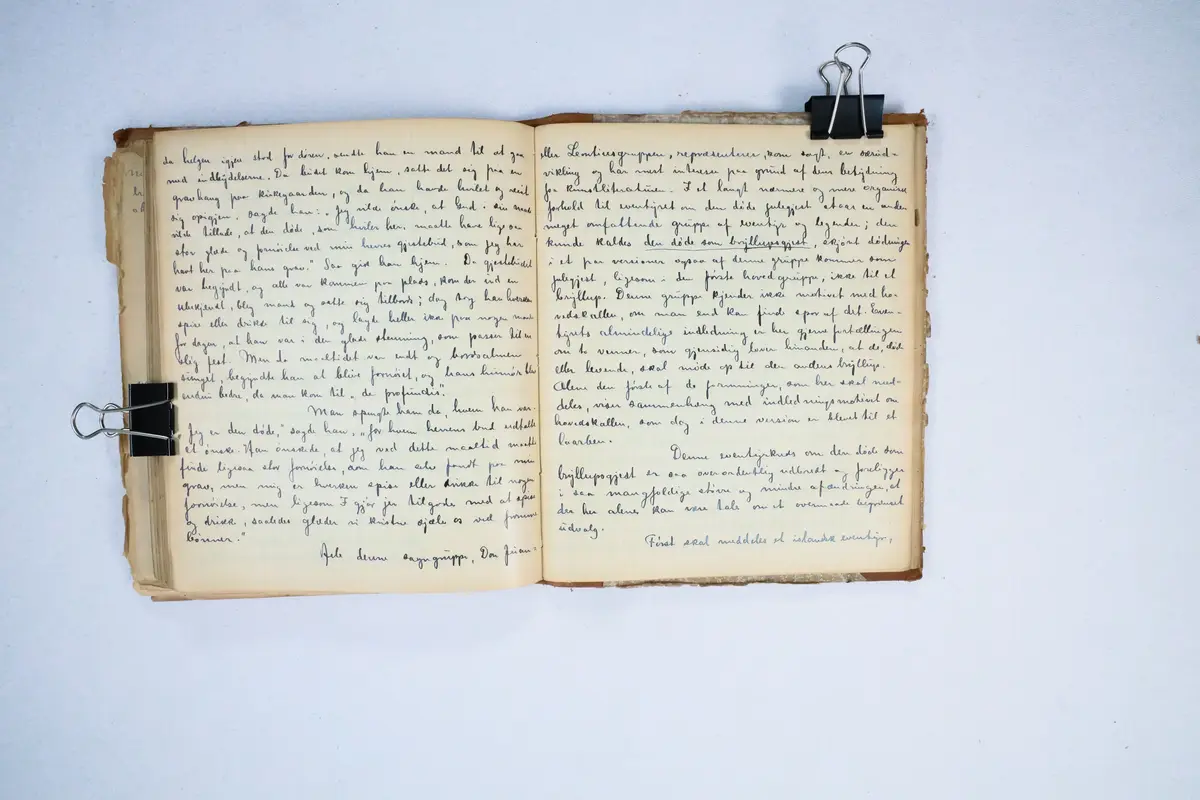 da helgen igjen stod for døren, sendte han en mand til at gaa
med indbydelserne. Da budet kom hjem, satte det sig paa en
gravhaug paa kirkegaarden, og da han havde hvilet og reist
sig opigjen, sagde han: „Jeg vilde ønske, at Gud i sin naade
vilde tillade, at den døde, som hviler her, maatte have lige saa
stor glæde og fornøielse ved min herres gjestebud, som jeg har
havt her paa hans grav." Saa gik han hjem. Da gjestebudet
var begyndt, og alle var kommen paa plads, kom der ind en
ubekjendt, bleg mand og satte sig tilbords; dog tog han hverken
spise eller drikke til sig, og lagde heller ikke paa nogen maade
for dagen, at han var i den glade stemning, som passer til en
slig fest. Men da maaltidet var endt og bordsalmen
sunget, begyndte han at blive fornøiet, og hans humør blev
endnu bedre, da man kom til „de profundis".
Man spurgte ham da, hvem han var.
„Jeg er den døde," sagde han, „for hvem herrens bud udtalte
et ønske. Han ønskede, at jeg ved dette maaltid maatte
finde ligesaa stor fornøielse, som han selv fandt paa min
grav, men mig er hverken spise eller drikke til nogen
fornøielse, men ligesom I gjør jer tilgode med at spise
og drikke, saaledes glæder vi kristne sjæle os ved fromme
bønner."
Hele denne sagngruppe, Don Juan-
eller Leontiusgruppen, repræsenterer, som sagt, en særud-
vikling og har mest interesse paa grund af dens betydning
for kunstliteraturen. I et langt nærmere og mere organisk
forhold til eventyret om den døde julegjest staar en anden
meget omfattende gruppe af eventyr og legender; den
kunde kaldes den døde som bryllupsgjest, skjønt dødningen
i et par versioner ogsaa af denne gruppe kommer som
julegjest, ligesom i den første hovedgruppe, ikke til et
bryllup. Denne gruppe kjender ikke motivet med ho-
vedskallen, om man end kan finde spor af det. Even-
tyrets almindelige indledning er her gjerne fortællingen
om to venner, som gjensidig lover hinanden, at de, døde
eller levende, skal møde op til den andens bryllup.
Alene den første af de formninger, som her skal med-
deles, viser sammenhæng med indledningsmotivet om
hovedskallen, som dog i denne version er blevet til et
laarben.
Denne eventyrkreds om den døde som
bryllupsgjest er saa overordentlig udbredt og foreligger
i saa mangfoldige større og mindre afændringer, at
der her alene kan være tale om et overmaade begrænset
udvalg.
Først skal meddeles et islandsk eventyr,